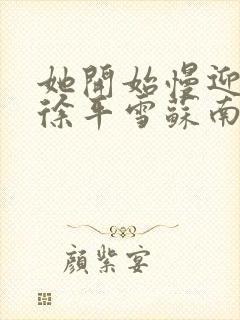 她開始慢迎
徐平雪蘇南
顏紫宴